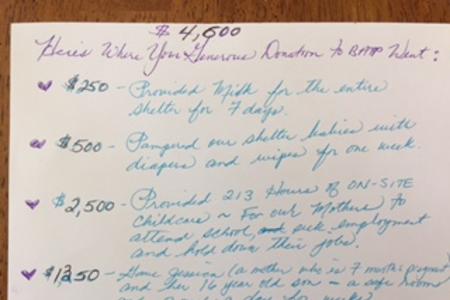 $ 4,600
Here's Where Your Generous Donation to BAPP Went:
$250 - Provided Milk for the entire
shelter for 7 days.
$500 - Pampered our shelter babies with
diapers and wipes for one week.
$2,500 - Provided 213 Hours of ON-SITE
Childcare ~ For our Mothers to
attend school, seek employment
and hold down their jobs.
$1350 - Gave Jessica (a mother who is 7 months pregnant
and her 16 year old son - a safe room